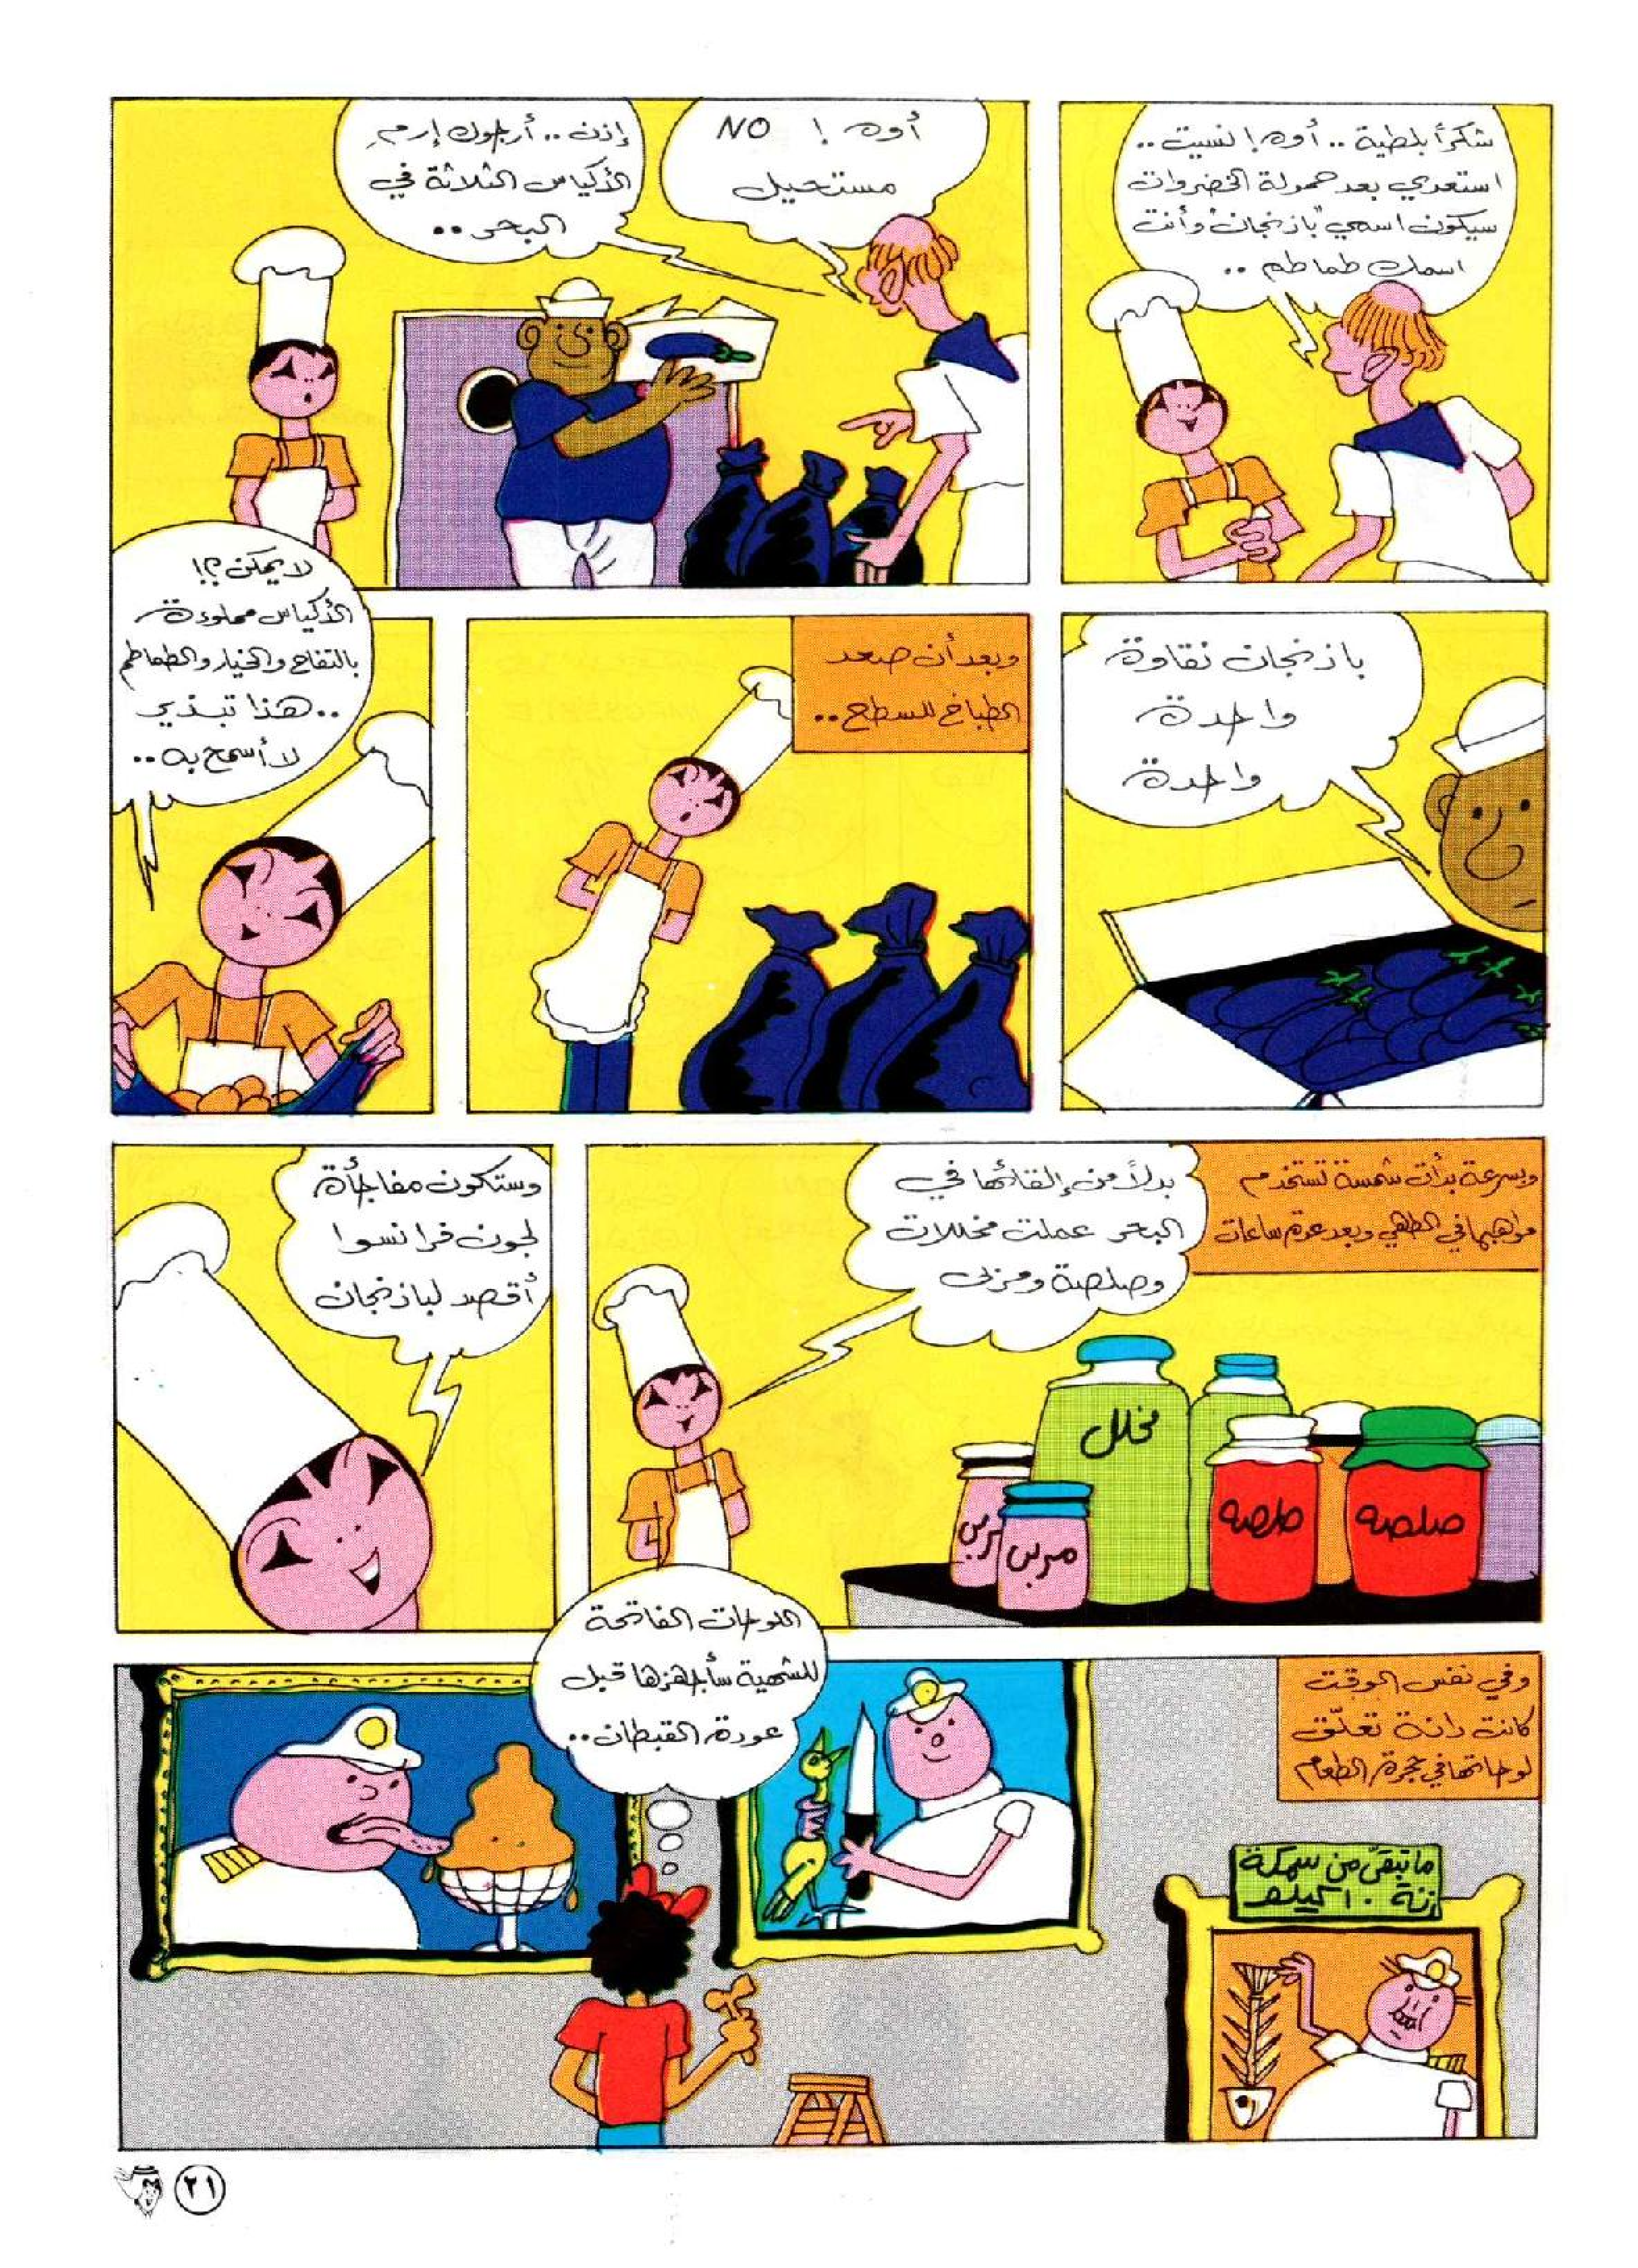 شكراً بلطية .. أوه ! نسيت ..
استعدي بعد حمولة الخضروات
سيكون اسمي "باذنجان" وأنت
اسمك طماطم ..
أوه ! NO
مستحيل
إذن .. أرجوك إرمِ
الأكياس الثلاثة في
البحر ..
باذنجان نقاوة
واحدة
واحدة
وبعد أن صعد
الطباخ للسطح ..
لا يمكن ؟!
الأكياس مملوءة
بالتفاح والخيار والطماطم
.. هذا تبذير
لا أسمح به ..
وبسرعة بدأت شمسة تستخدم
مواهبها في الطهي وبعد عدة ساعات
بدلاً من إلقائها في
البحر عملت مخللات
وصلصة ومربى
مخلل
مربى
مربى
صلصه
صلصه
وستكون مفاجأة
لجون فرانسوا
أقصد لباذنجان
وفي نفس الوقت
كانت دانة تعلّق
لوحاتها في حجرة الطعام
اللوحات الفاتحة
للشهية سأجهزها قبل
عودة القبطان ..
ما تبقّى من سمكة
زنة ١٠ كيلو
٢١